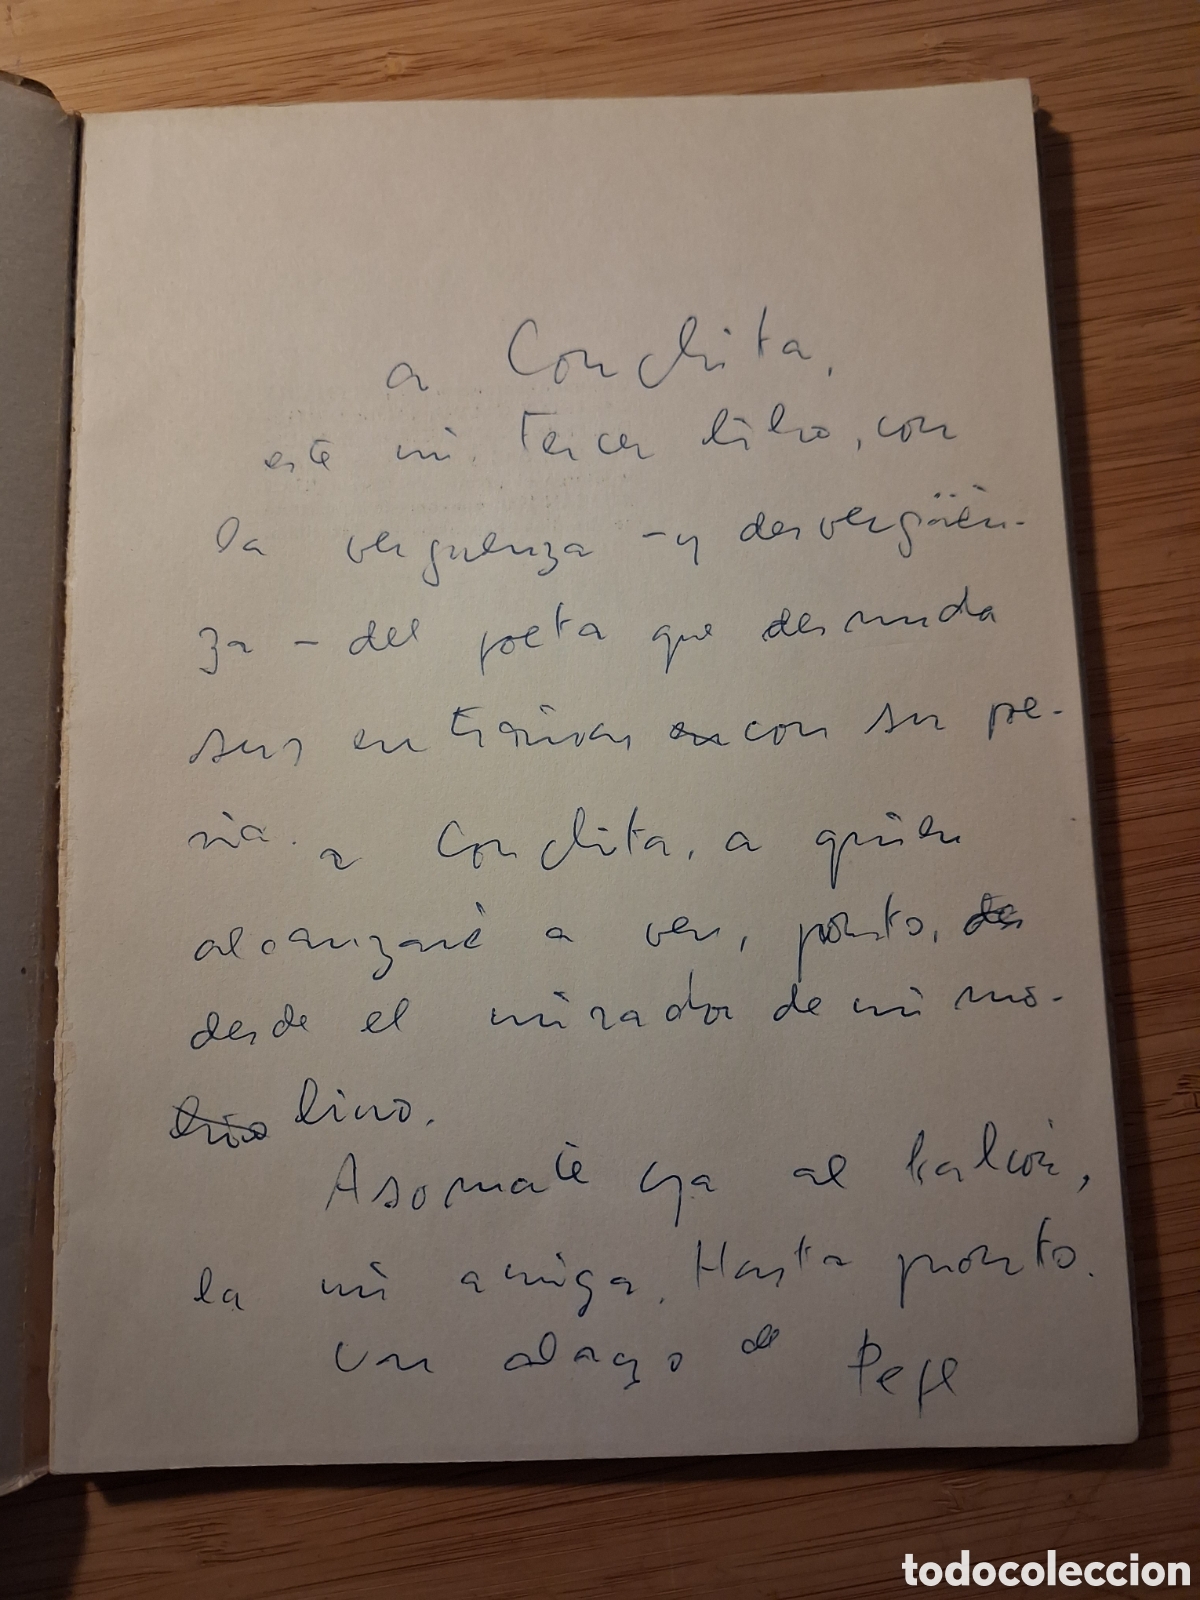 a Conchita,
este mi tercer libro, con
la verguenza - y desvergüen-
za - del poeta que desnuda
sus entrañas en con su poe-
sía. a Conchita, a quien
alcanzaré a ver, pronto, de
desde el mirador de mi mo-
lino.
Asomate ya al balcón,
la mi amiga. Hasta pronto.
Un abrazo de Pepe
todocoleccion